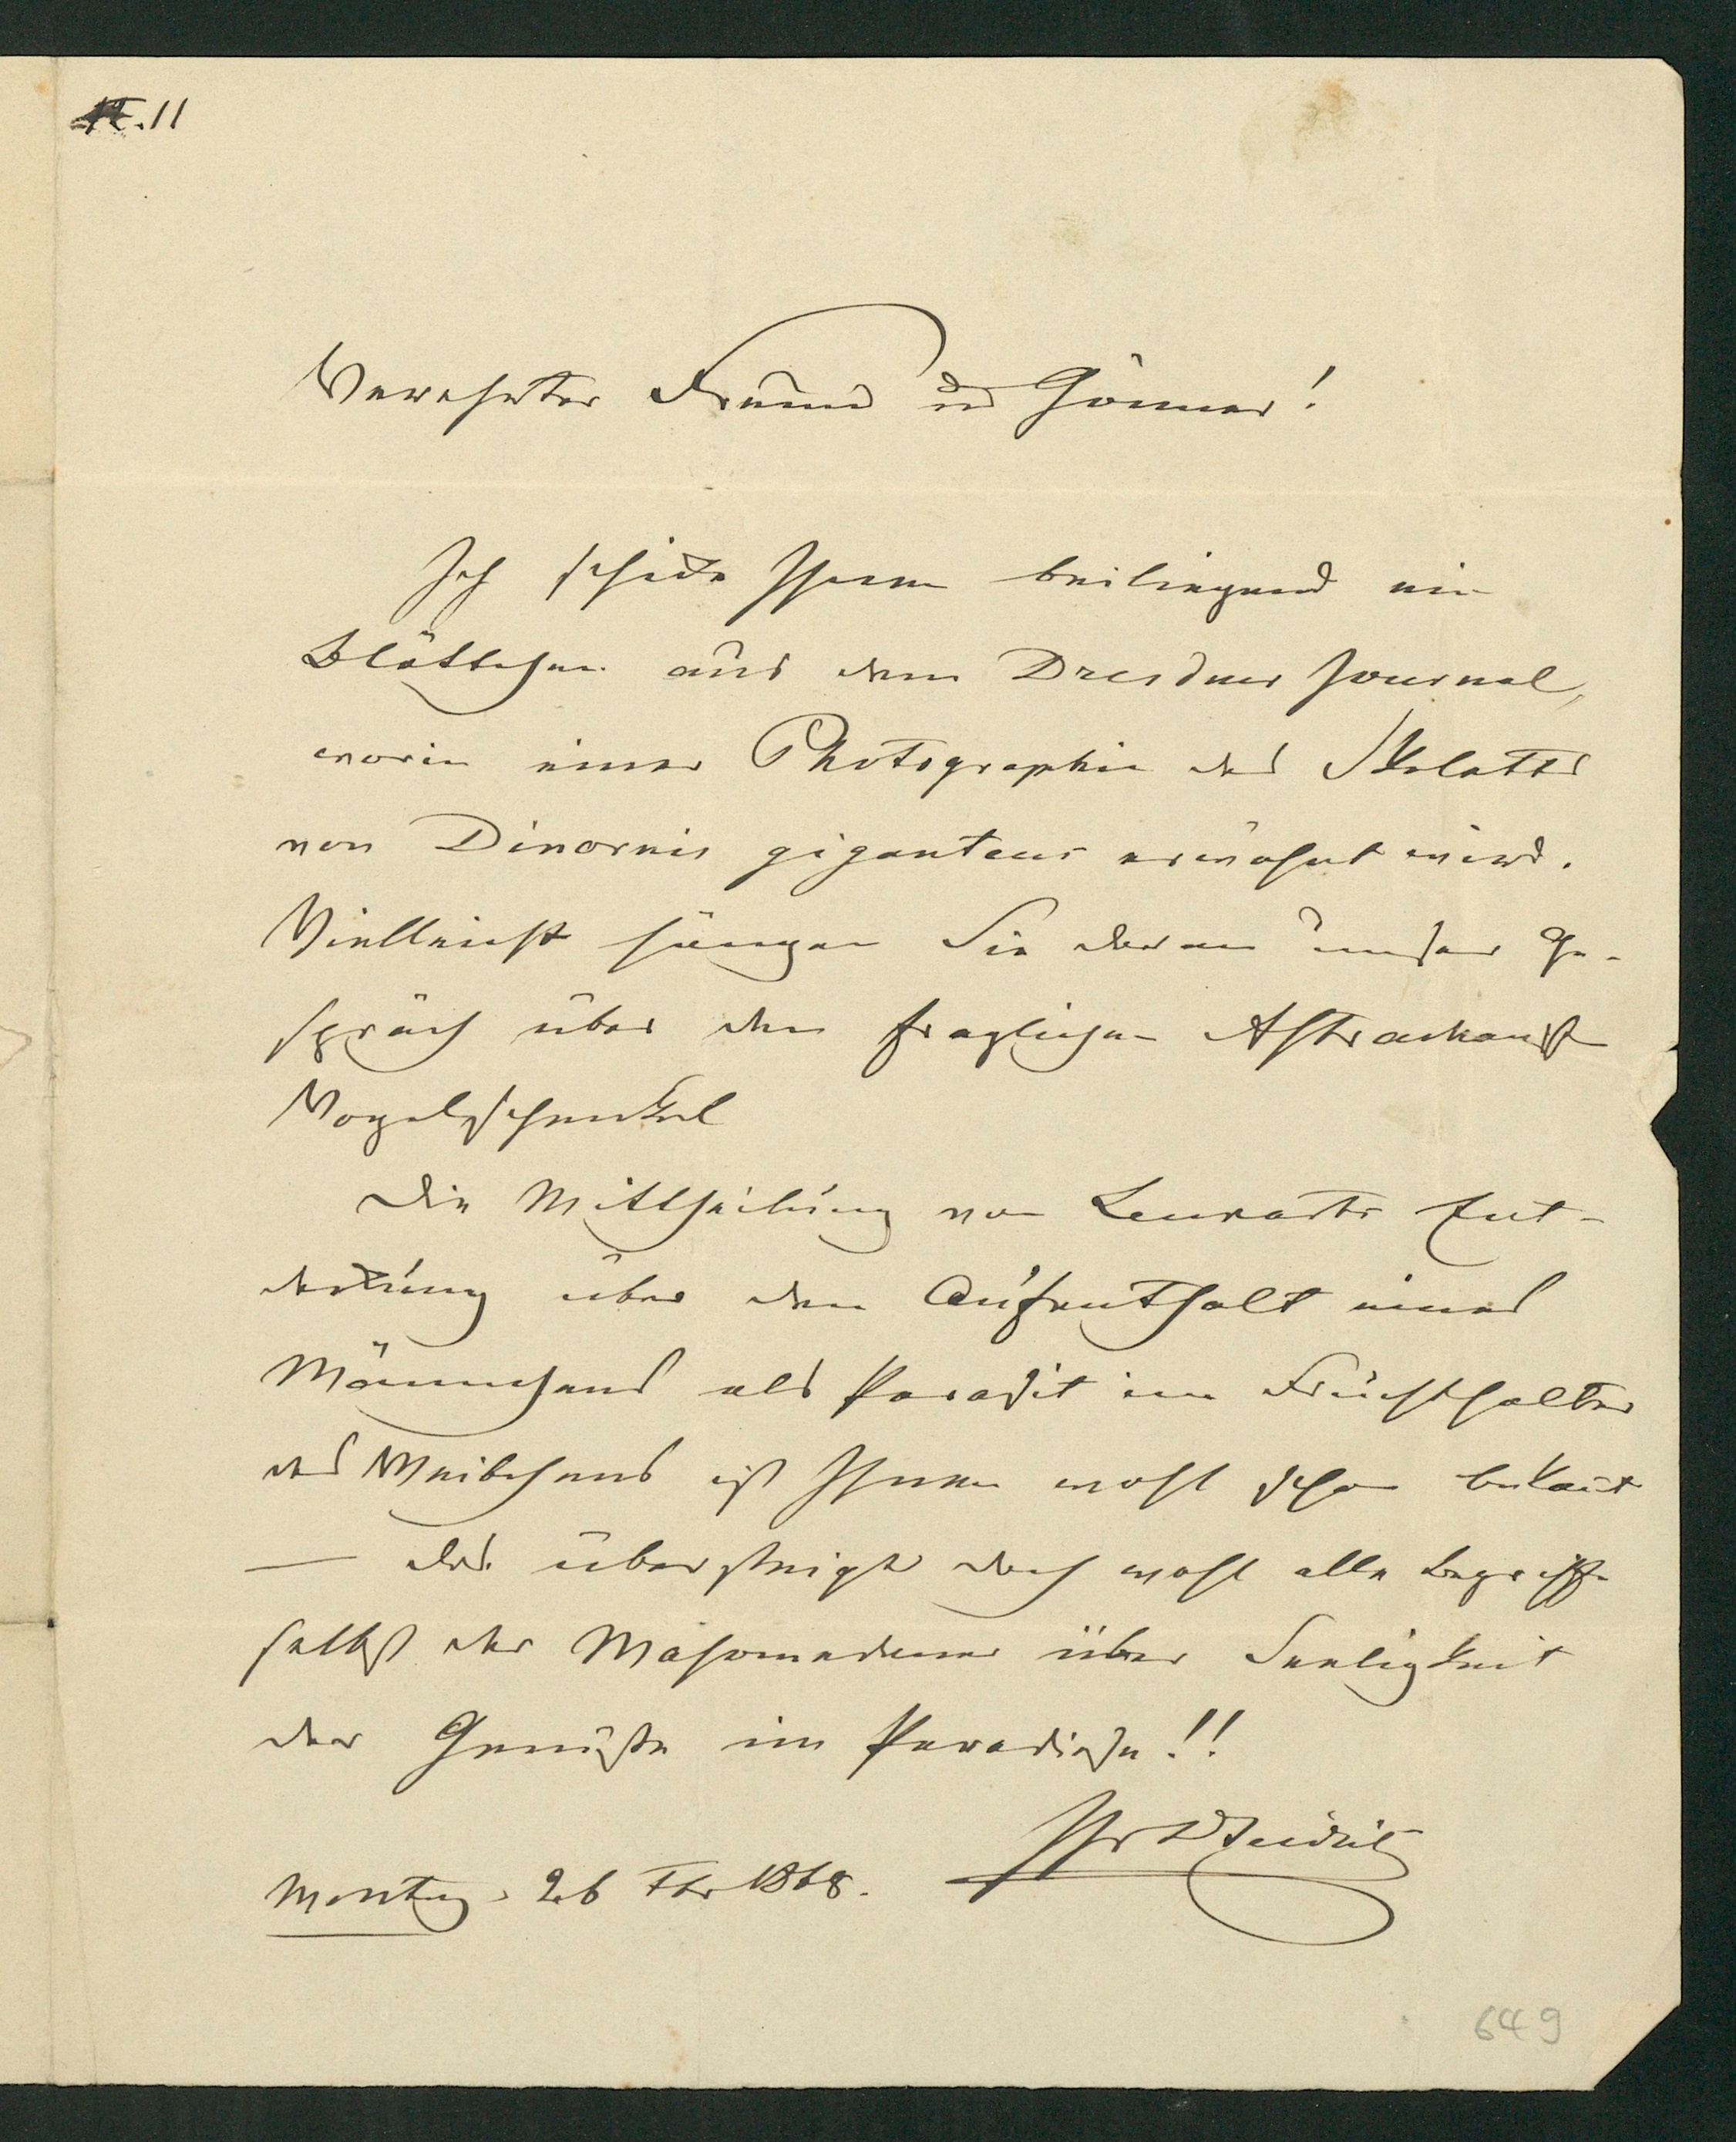 11
Verehrter Freund und Gönner!
Ich schicke Ihnen beiliegend ein
Blättchen aus dem Dresdner Journal,
worin einer Photographie des Skeletts
von Dinornis giganteus erwähnt wird.
Vielleicht hängen Sie daran unser Ge-
spräch über den fraglichen
Vogelschenkel
Die Mittheilung von Leukarts Ent-
deckung über den Aufenthalt eines
Männchens als Parasit im Fruchthalter
des Weibchens ist Ihnen wohl schon bekañt
— das übersteigt doch wohl alle Begriffe
selbst der Mahomedaner über Seeligkeit
der Genüße im Paradiese!!
Ihr
Montag 26 Fbr 1868.
649